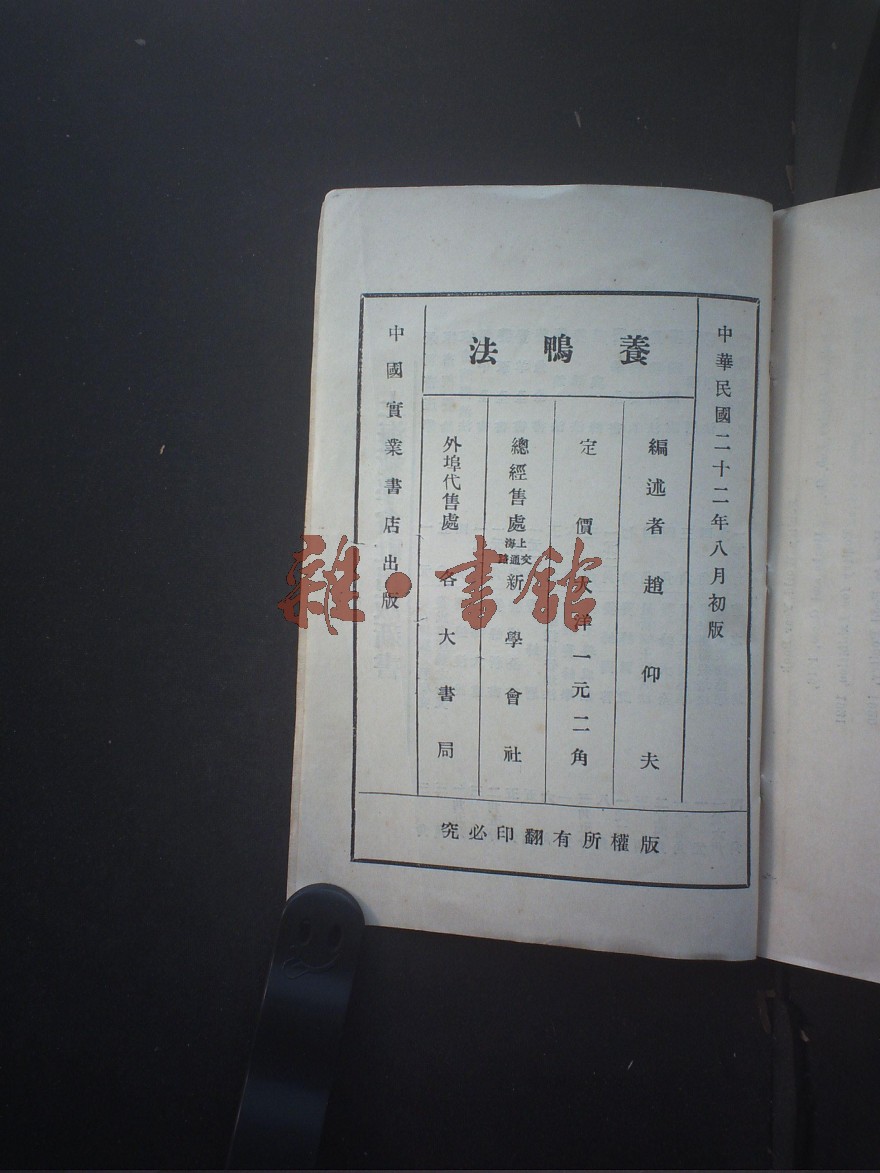 中華民國二十二年八月初版
養鴨法
編述者 趙仰夫
定價大洋一元二角
總經售處 上海交通路 新學會社
外埠代售處 各大書局
中國實業書店出版
版權所有翻印必究
雜·書館